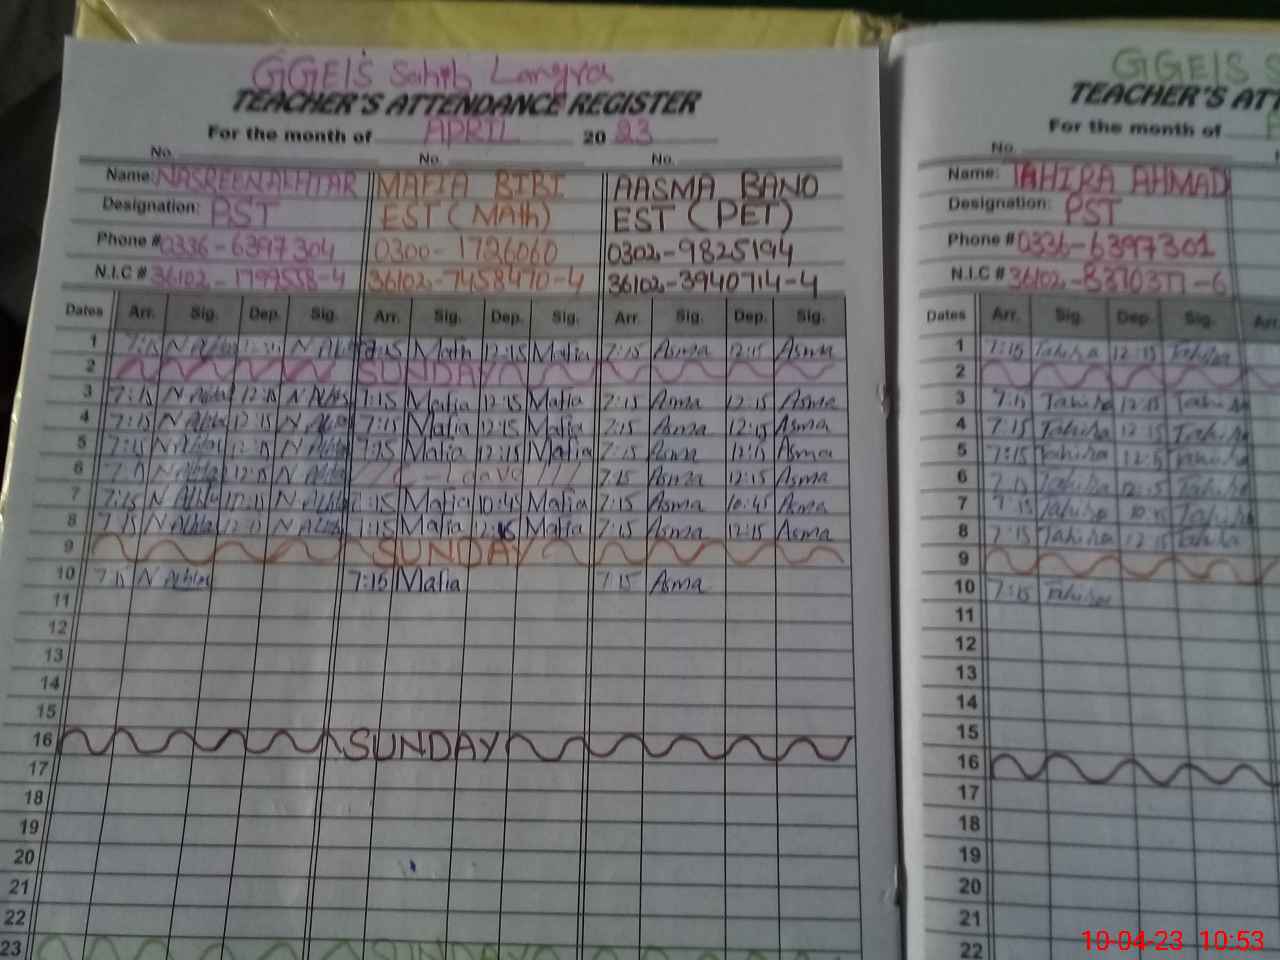 GGEIS Sahib Langra
TEACHER'S ATTENDANCE REGISTER
For the month of APRIL 2023
No. No. No.
Name: NASREEN AKHTAR MAFIA BIBI AASMA BANO
Designation: PST EST (MATh) EST (PET)
Phone # 0336-6397304 0300-1726060 0302-9825194
N.I.C # 36102-1799558-4 36102-7458470-4 36102-3940714-4
Dates Arr. Sig. Dep. Sig. Arr. Sig. Dep. Sig. Arr. Sig. Dep. Sig.
1 7:15 N Akhtar N Akhtar 7:15 Mafia 12:15 Mafia 7:15 Asma 12:15 Asma
2 SUNDAY
3 7:15 N Akhtar 12:15 N Akhtar 7:15 Mafia 12:15 Mafia 7:15 Asma 12:15 Asma
4 7:15 N Akhtar 12:15 N Akhtar 7:15 Mafia 12:15 Mafia 7:15 Asma 12:15 Asma
5 7:15 N Akhtar 12:15 N Akhtar 7:15 Mafia 12:15 Mafia 7:15 Asma 12:15 Asma
6 N Akhtar 12:15 N Akhtar Leave 7:15 Asma 12:15 Asma
7 7:15 N Akhtar N Akhtar 7:15 Mafia 10:45 Mafia 7:15 Asma 10:45 Asma
8 7:15 N Akhtar N Akhtar 7:15 Mafia 12:15 Mafia 7:15 Asma 12:15 Asma
9 SUNDAY
10 7:15 N Akhtar 7:15 Mafia 7:15 Asma
11
12
13
14
15
16 SUNDAY
17
18
19
20
21
22
23 SUNDAY
GGEIS S
TEACHER'S ATT
For the month of
No.
Name: TAHIRA AHMAD
Designation: PST
Phone # 0336-6397301
N.I.C # 36102-8370377-6
Dates Arr. Sig. Dep. Sig. Arr
1 7:15 Tahira 12:15 Tahira
2
3 7:15 Tahira 12:15 Tahira
4 7:15 Tahira 12:15 Tahira
5 7:15 Tahira Tahira
6 Tahira Tahira
7 7:15 Tahira Tahira
8 7:15 Tahira 12:15 Tahira
9
10 7:15 Tahira
11
12
13
14
15
16
17
18
19
20
21
22
10-04-23 10:53